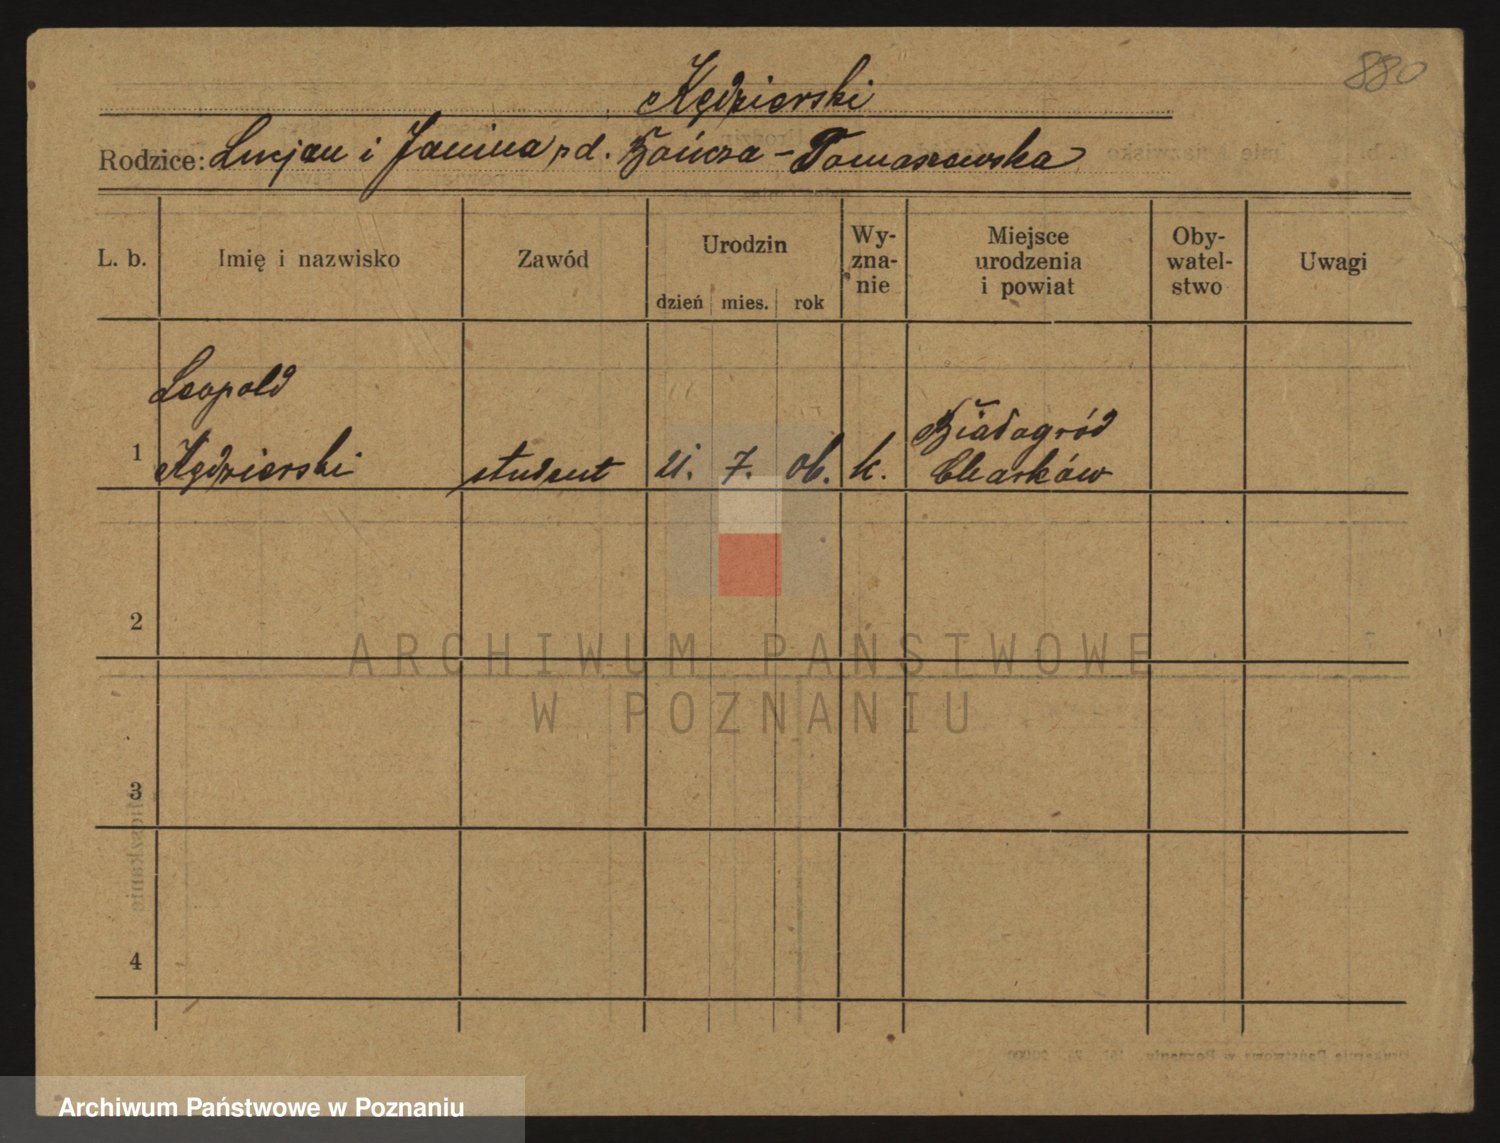 880
Kędzierski
Rodzice: Lucjan i Janina zd. Bończa-Tomaszewska
L. b. Imię i nazwisko Zawód Urodzin Wy-zna-nie Miejsce urodzenia i powiat Oby-watel-stwo Uwagi
dzień mies. rok
Leopold
1 Kędzierski student 21. 7. 06. k. Białogród
Charków
2
3
4
ARCHIWUM PAŃSTWOWE
W POZNANIU
Archiwum Państwowe w Poznaniu